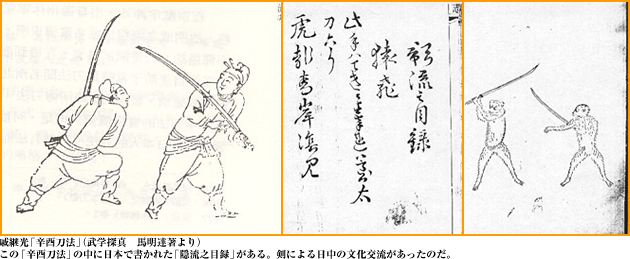 影流之目録
猿飛
此手ハてき
虎飛青岸陰見
戚継光「辛酉刀法」(武学探真　馬明達著より)
この「辛酉刀法」の中に日本で書かれた「隠流之目録」がある。剣による日中の文化交流があったのだ。